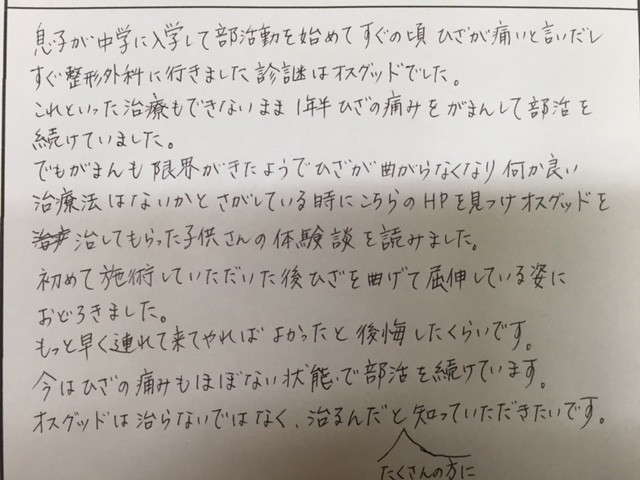 息子が中学に入学して部活動を始めてすぐの頃ひざが痛いと言いだし
すぐ整形外科に行きました診謎はオスグッドでした。
これといった治療もできないまま1年半ひざの痛みをがまんして部活を
続けていました。
でもがまんも限界がきたようでひざが曲がらなくなり何か良い
治療法はないかとさがしている時にこちらのHPを見つけオスグッドを
治してもらった子供さんの体験談を読みました。
初めて施術していただいた後ひざを曲げて屈伸している姿に
おどろきました。
もっと早く連れて来てやればよかったと後悔したくらいです。
今はひざの痛みもほぼない状態で部活を続けています。
オスグッドは治らないではなく、治るんだと知っていただきたいです。
たくさんの方に